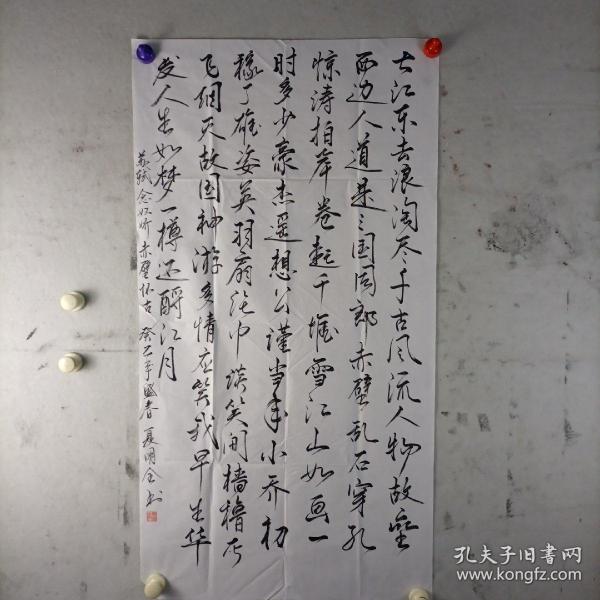 大江东去浪淘尽千古风流人物故垒
西边人道是三国周郎赤壁乱石穿孔
惊涛拍岸卷起千堆雪江山如画一
时多少豪杰遥想公谨当年小乔初
嫁了雄姿英羽扇纶巾谈笑间樯橹灰
飞烟灭故国神游多情应笑我早生华
发人生如梦一樽还酹江月
苏轼念奴娇赤壁怀古 癸巳年盛春 夏明全书
孔夫子旧书网
www.kongfz.com